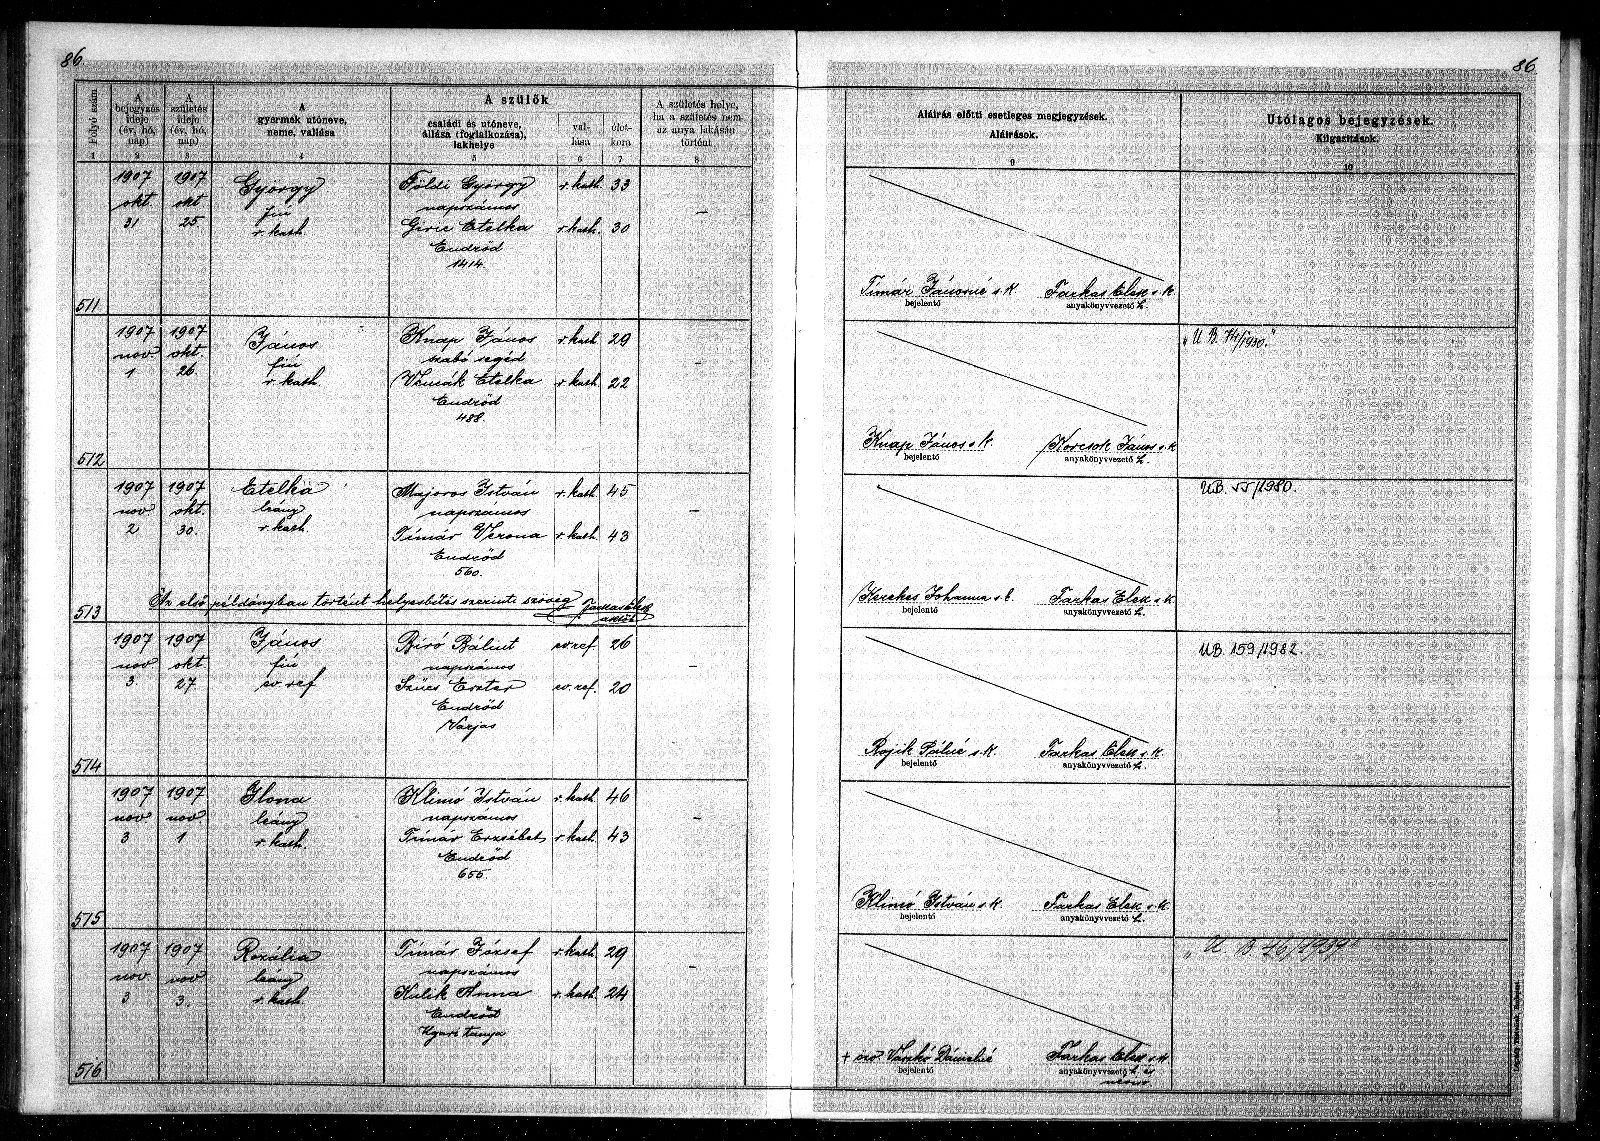 86.
86
Folyó szám
A bejegyzés ideje (év, hó, nap)
A születés ideje (év, hó, nap)
A gyermek utóneve, neme, vallása
A szülők
családi és utóneve, állása (foglalkozása), lakhelye
vallása
életkora
A születés helye, ha a születés nem az anya lakásán történt
Aláírás előtti esetleges megjegyzések.
Aláírások.
Utólagos bejegyzések.
Kiigazítások.
1 2 3 4 5 6 7 8 9 10
1907 1907 György Földi György r. kath. 33
okt. okt fiú napszámos
31 25. r. kath. Giric Etelka r. kath. 30 —
Endrőd
1414.
511
Tímár Jánosné s. k. Farkas Elek s. k.
bejelentő anyakönyvvezető h.
1907 1907 János Knap János r. kath. 29
nov okt. fiú szabó segéd
1 26. r. kath. Etelka r. kath. 22 —
Endrőd
488.
512
„U B. 74/1930."
Knap János s. k. Korcsok János s. k
bejelentő anyakönyvvezető h.
1907 1907 Etelka Majoros István r. kath. 45
nov okt. leány napszámos
2 30. r. kath. Tímár Verona r. kath. 43 —
Endrőd
560.
Az első példányban történt helyesbítés szerinti szöveg Farkas Elek
513
UB. 55/1980.
Kerekes Johanna s. k. Farkas Elek s. k
bejelentő anyakönyvvezető h.
1907 1907 János Bíró Bálint ev. ref. 26
nov okt fiú napszámos
3. 27. ev. ref Szücs Eszter ev. ref. 20 —
Endrőd
Varjas
514
UB. 159/1982.
Rojik Pálné s. k. Farkas Elek s. k.
bejelentő anyakönyvvezető h.
1907 1907 Ilona Klimó István r. kath. 46
nov nov. leány napszámos
3 1 r. kath. Tímár Erzsébet r. kath. 43 —
Endrőd
655.
515
Klimó István s. k Farkas Elek s. k.
bejelentő anyakönyvvezető h.
1907 1907 Rozália Tímár József r. kath. 29
nov. nov leány napszámos
3 3. r. kath. Kulik Anna r. kath. 24 —
Endrőd
tanya
516
„U B.
+ özv Vaskó Dánielné Farkas Elek s. k
bejelentő anyakönyvvezető h. és